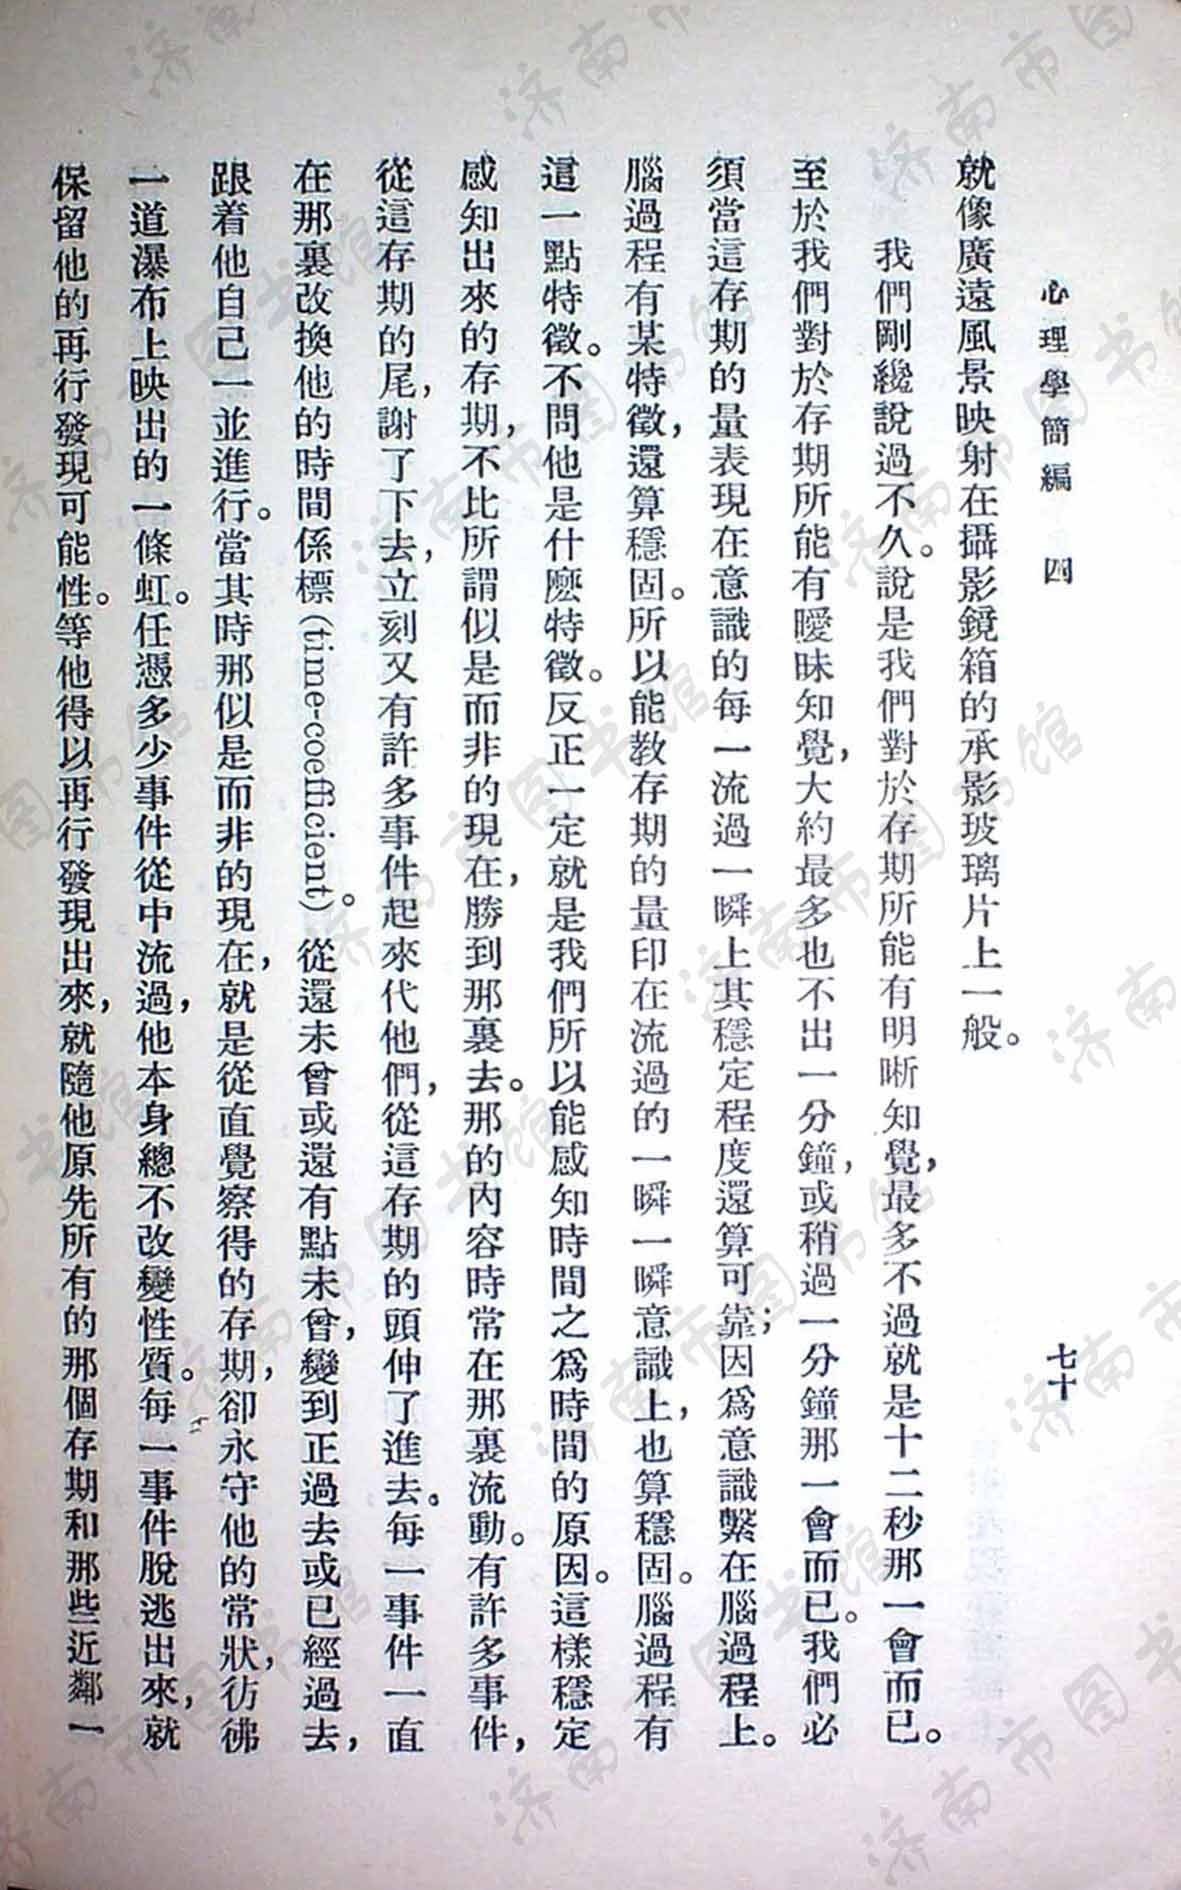 心理學簡編 四 七十
就像廣遠風景映射在攝影鏡箱的承影玻璃片上一般。
我們剛纔說過不久。說是我們對於存期所能有明晰知覺,最多不過就是十二秒那一會而已。
至於我們對於存期所能有曖昧知覺,大約最多也不出一分鐘,或稍過一分鐘那一會而已。我們必
須當這存期的量表現在意識的每一流過一瞬上其穩定程度還算可靠;因爲意識繫在腦過程上。
腦過程有某特徵,還算穩固。所以能教存期的量印在流過的一瞬一瞬意識上,也算穩固。腦過程有
這一點特徵。不問他是什麼特徵。反正一定就是我們所以能感知時間之爲時間的原因。這樣穩定
感知出來的存期,不比所謂似是而非的現在,勝到那裏去。那的內容時常在那裏流動。有許多事件,
從這存期的尾,謝了下去,立刻又有許多事件起來代他們,從這存期的頭伸了進去。每一事件一直
在那裏改換他的時間係標(time-coefficient)。從還未曾或還有點未曾,變到正過去或已經過去,
跟着他自己一並進行。當其時那似是而非的現在,就是從直覺察得的存期,卻永守他的常狀,彷彿
一道瀑布上映出的一條虹。任憑多少事件從中流過,他本身總不改變性質。每一事件脫逃出來,就
保留他的再行發現可能性。等他得以再行發現出來,就隨他原先所有的那個存期和那些近鄰一
济南市图书馆